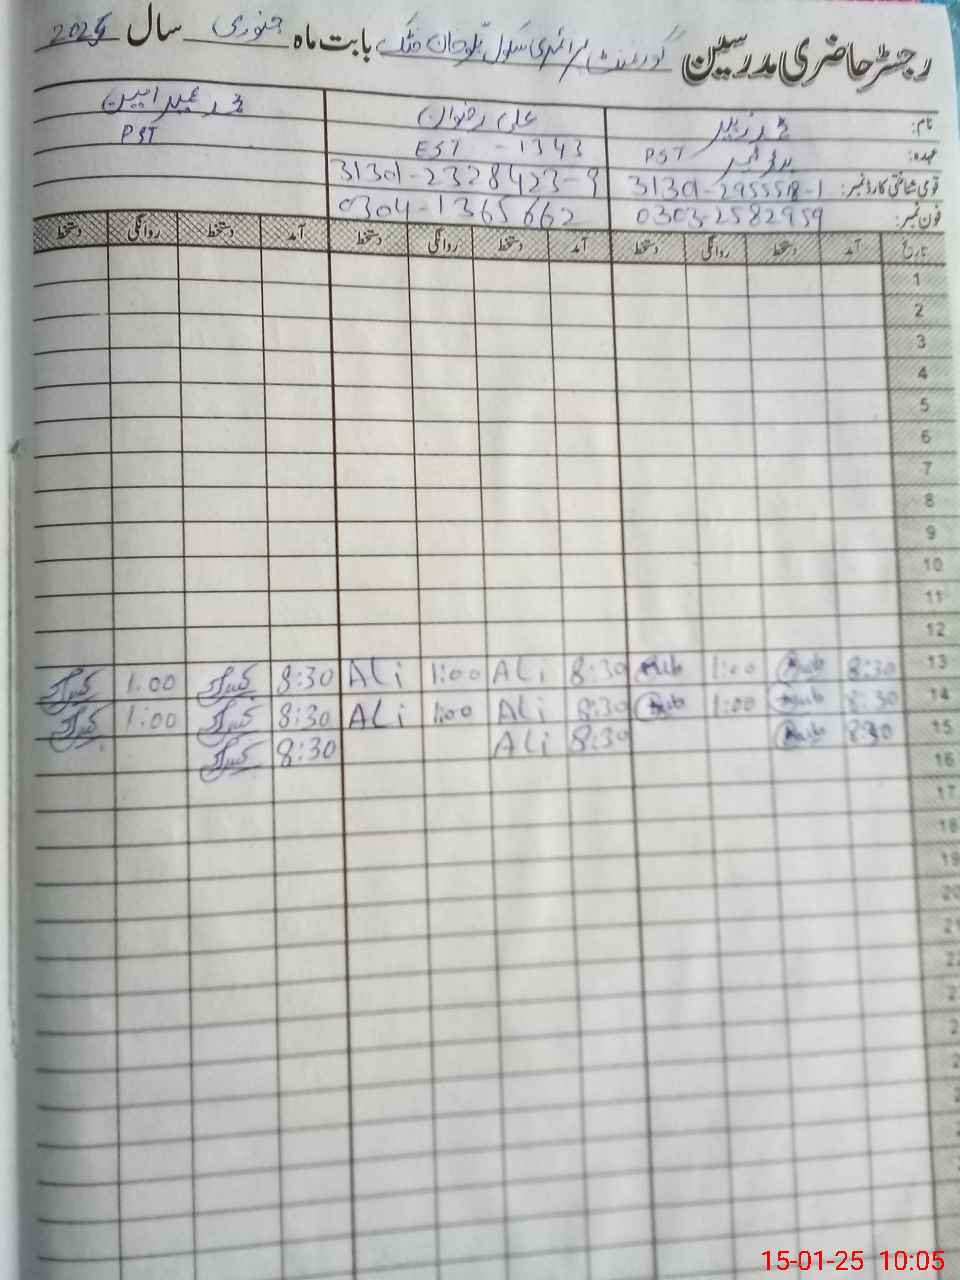 رجسٹر حاضری مدرسین گورنمنٹ پرائمری سکول بابت ماہ جنوری سال 2025
نام: محمد زبیر علی رضوان محمد عمیر امین
عہدہ: PST ہیڈ ٹیچر EST - 1343 PST
قومی شناختی کارڈ نمبر: 31301-2955518-1 31301-2328423-9
فون نمبر: 0303-2582959 0304-1365662
تاریخ آمد دستخط روانگی دستخط آمد دستخط روانگی دستخط آمد دستخط روانگی دستخط
1
2
3
4
5
6
7
8
9
10
11
12
13 8:30 1:00 8:30 ALi 1:00 ALi 8:30 1:00
14 8:30 1:00 8:30 ALi 1:00 ALi 8:30 1:00
15 8:30 8:30 ALi 8:30
16
17
18
19
20
21
22
15-01-25 10:05